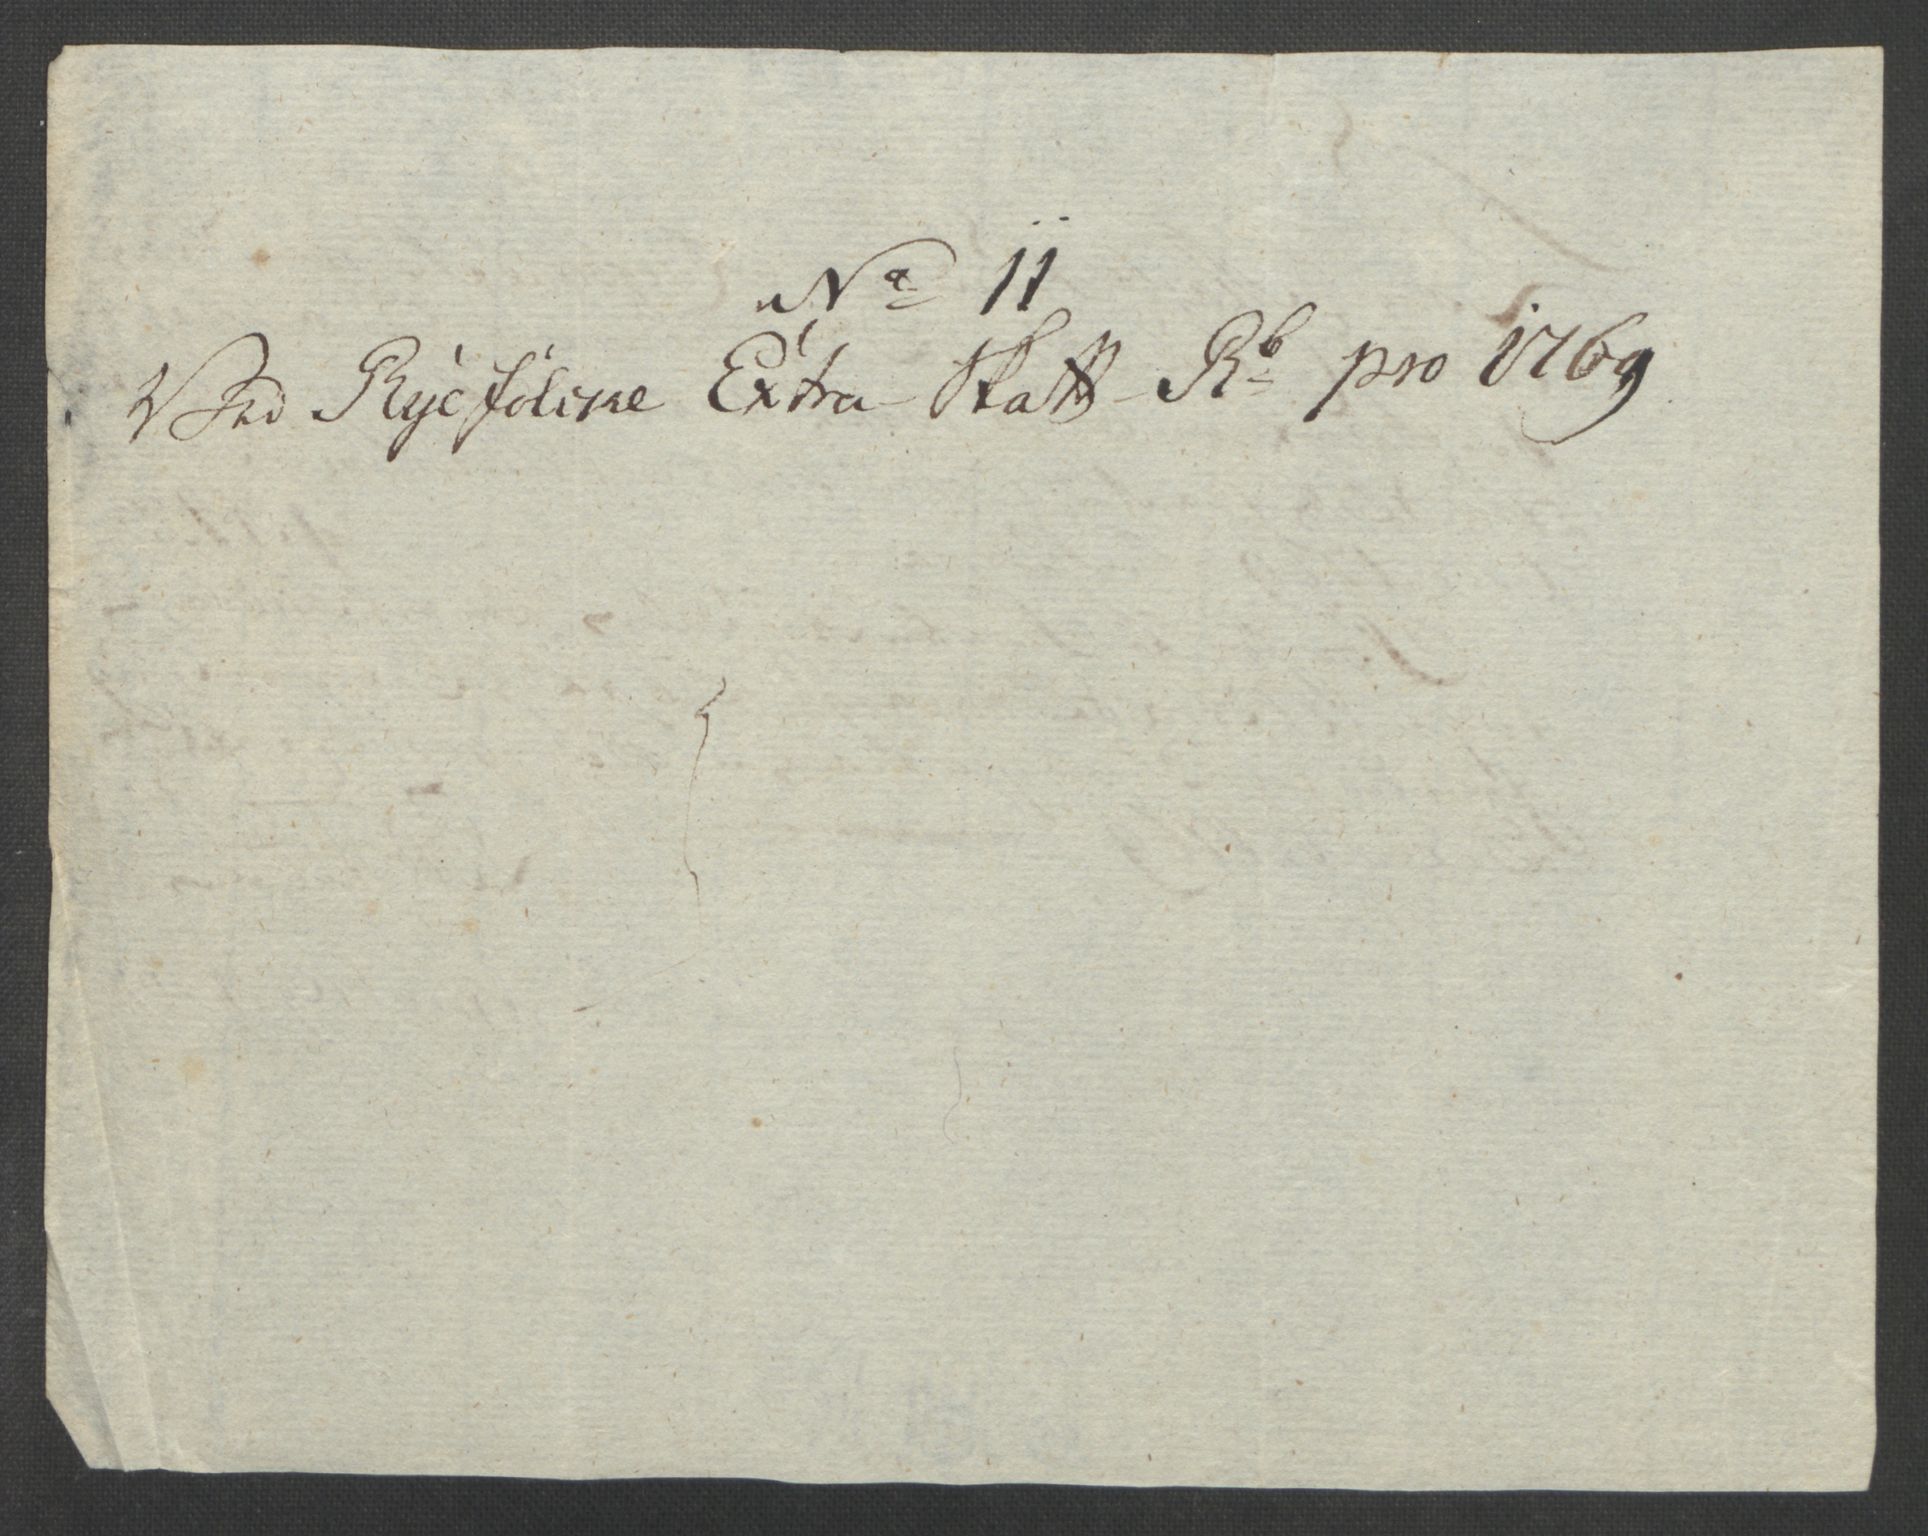 No 11
Ved Ryefölcke Extra-Skatt-Rb pro 1769